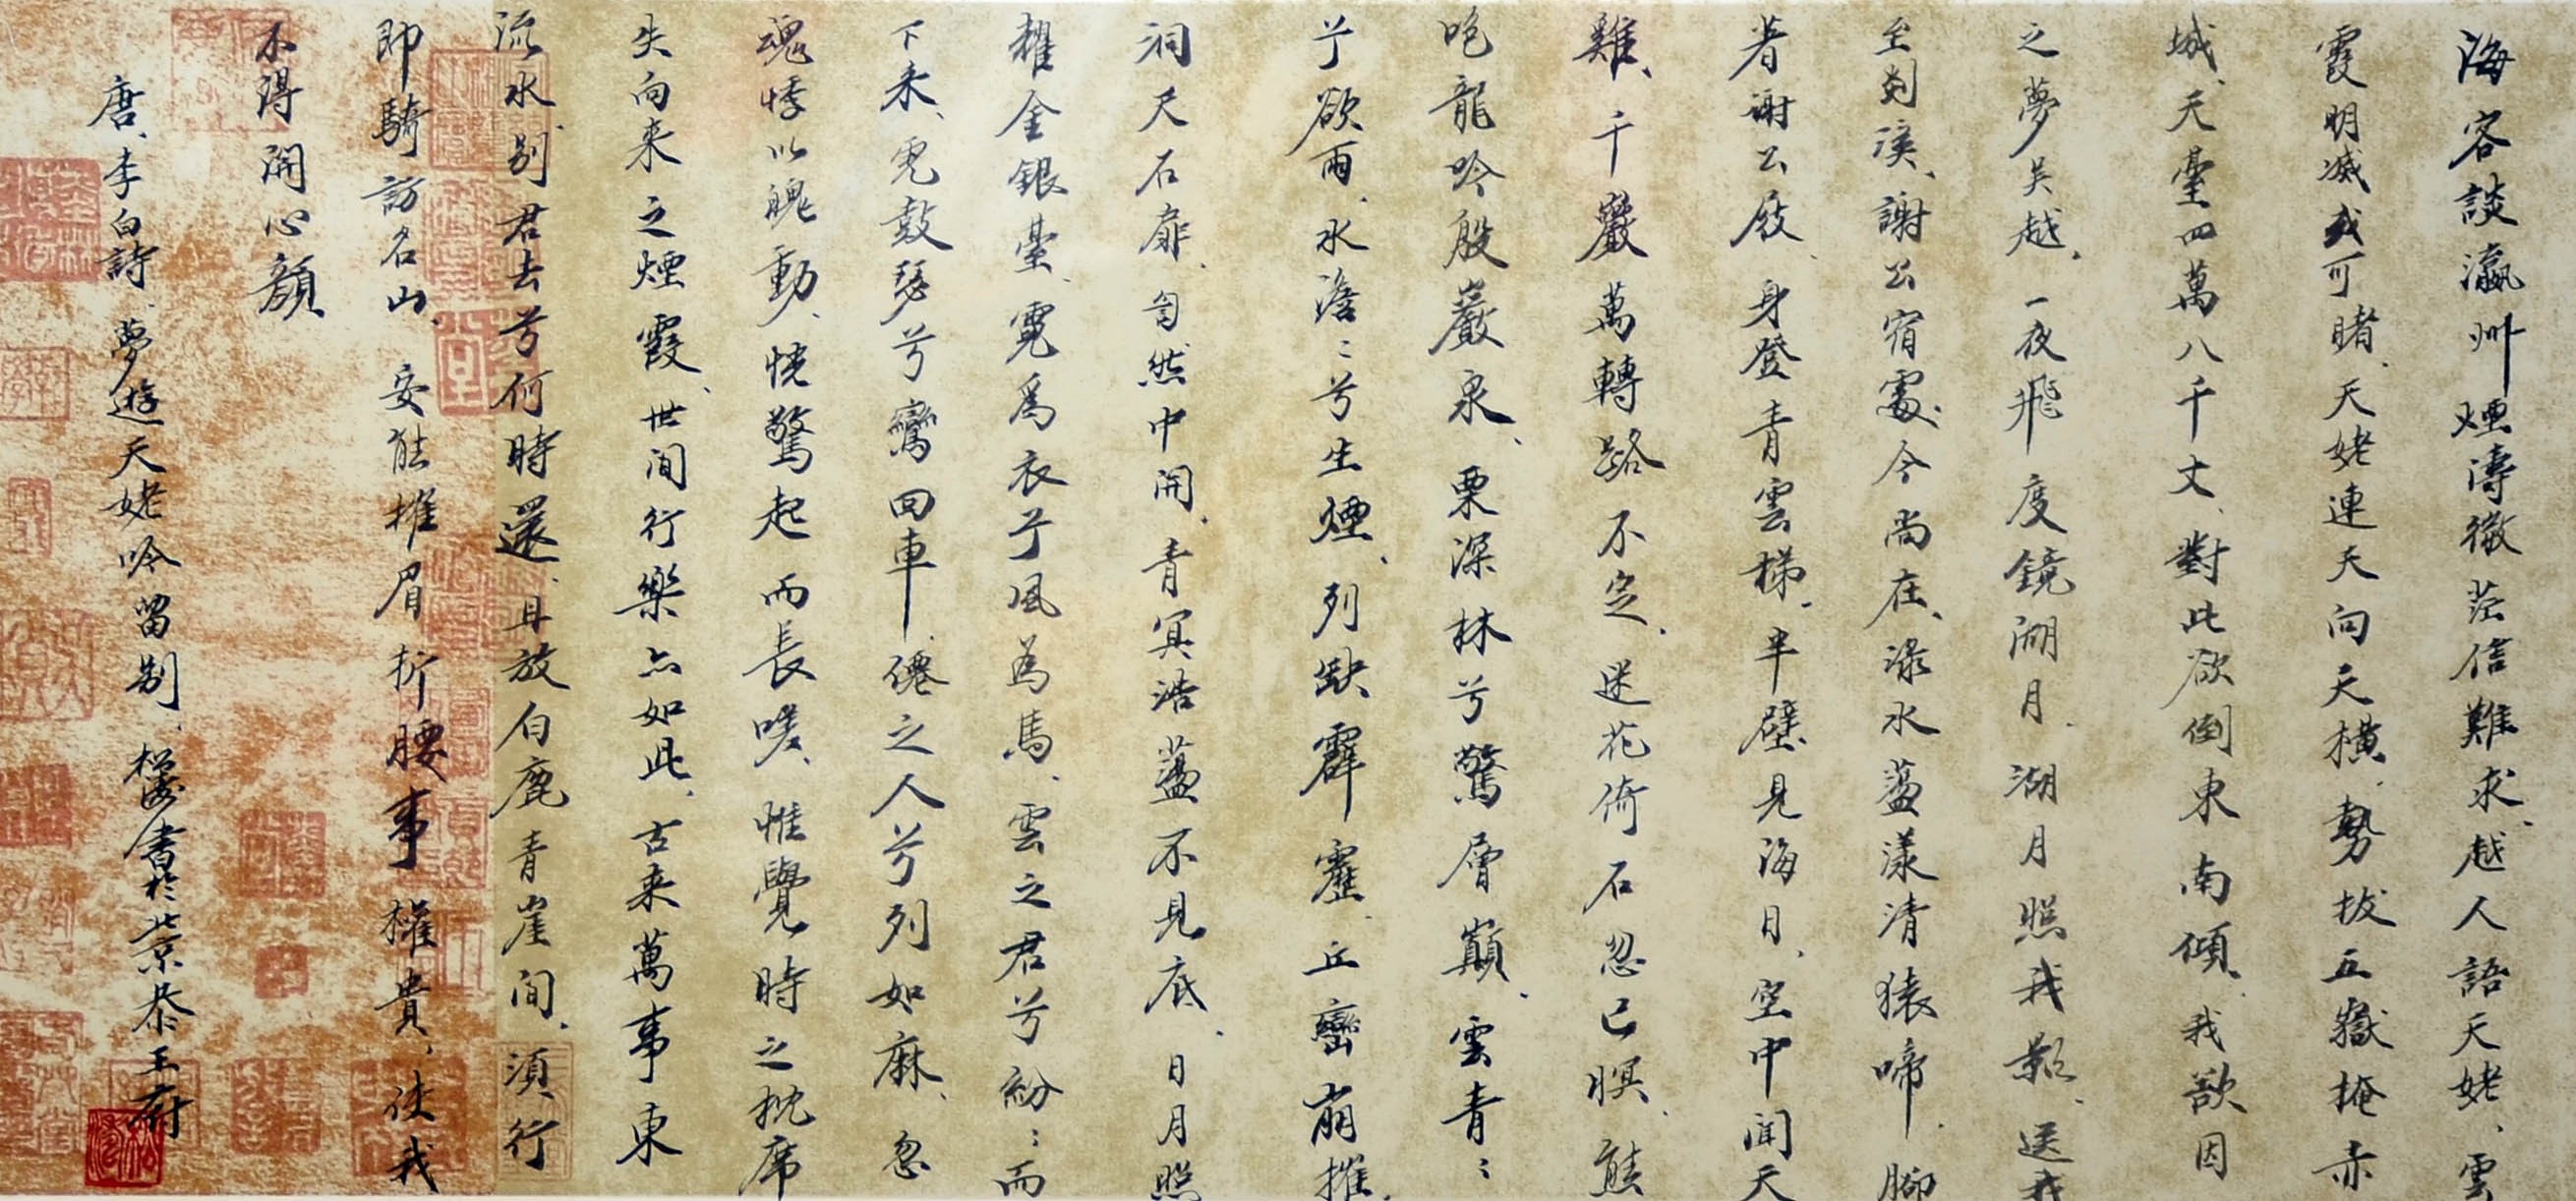 海客談瀛州煙濤微茫信難求越人語天姥雲
霞明滅或可睹天姥連天向天橫勢拔五嶽掩赤
城天臺四萬八千丈對此欲倒東南傾我欲因
之夢吳越一夜飛度鏡湖月湖月照我影送我
至剡溪謝公宿處今尚在淥水蘯漾清猿啼腳
著謝公屐身登青雲梯半壁見海日空中聞天
雞千巖萬轉路不定迷花倚石忽已暝熊
咆龍吟殷巖泉栗深林兮驚層巔雲青:
兮欲雨水澹:兮生煙列缺霹靂丘巒崩摧
洞天石扉訇然中開青冥浩蘯不見底日月照
耀金銀臺霓為衣兮風為馬雲之君兮紛:而
下來虎鼓瑟兮鸞回車僊之人兮列如麻忽
魂悸以魄動恍驚起而長嗟惟覺時之枕席
失向来之煙霞世間行樂亦如此古来萬事東
流水別君去兮何時還且放白鹿青崖間須行
即騎訪名山安能摧眉折腰事權貴使我
不得開心顏
唐李白詩夢遊天姥吟留別書於北京恭王府